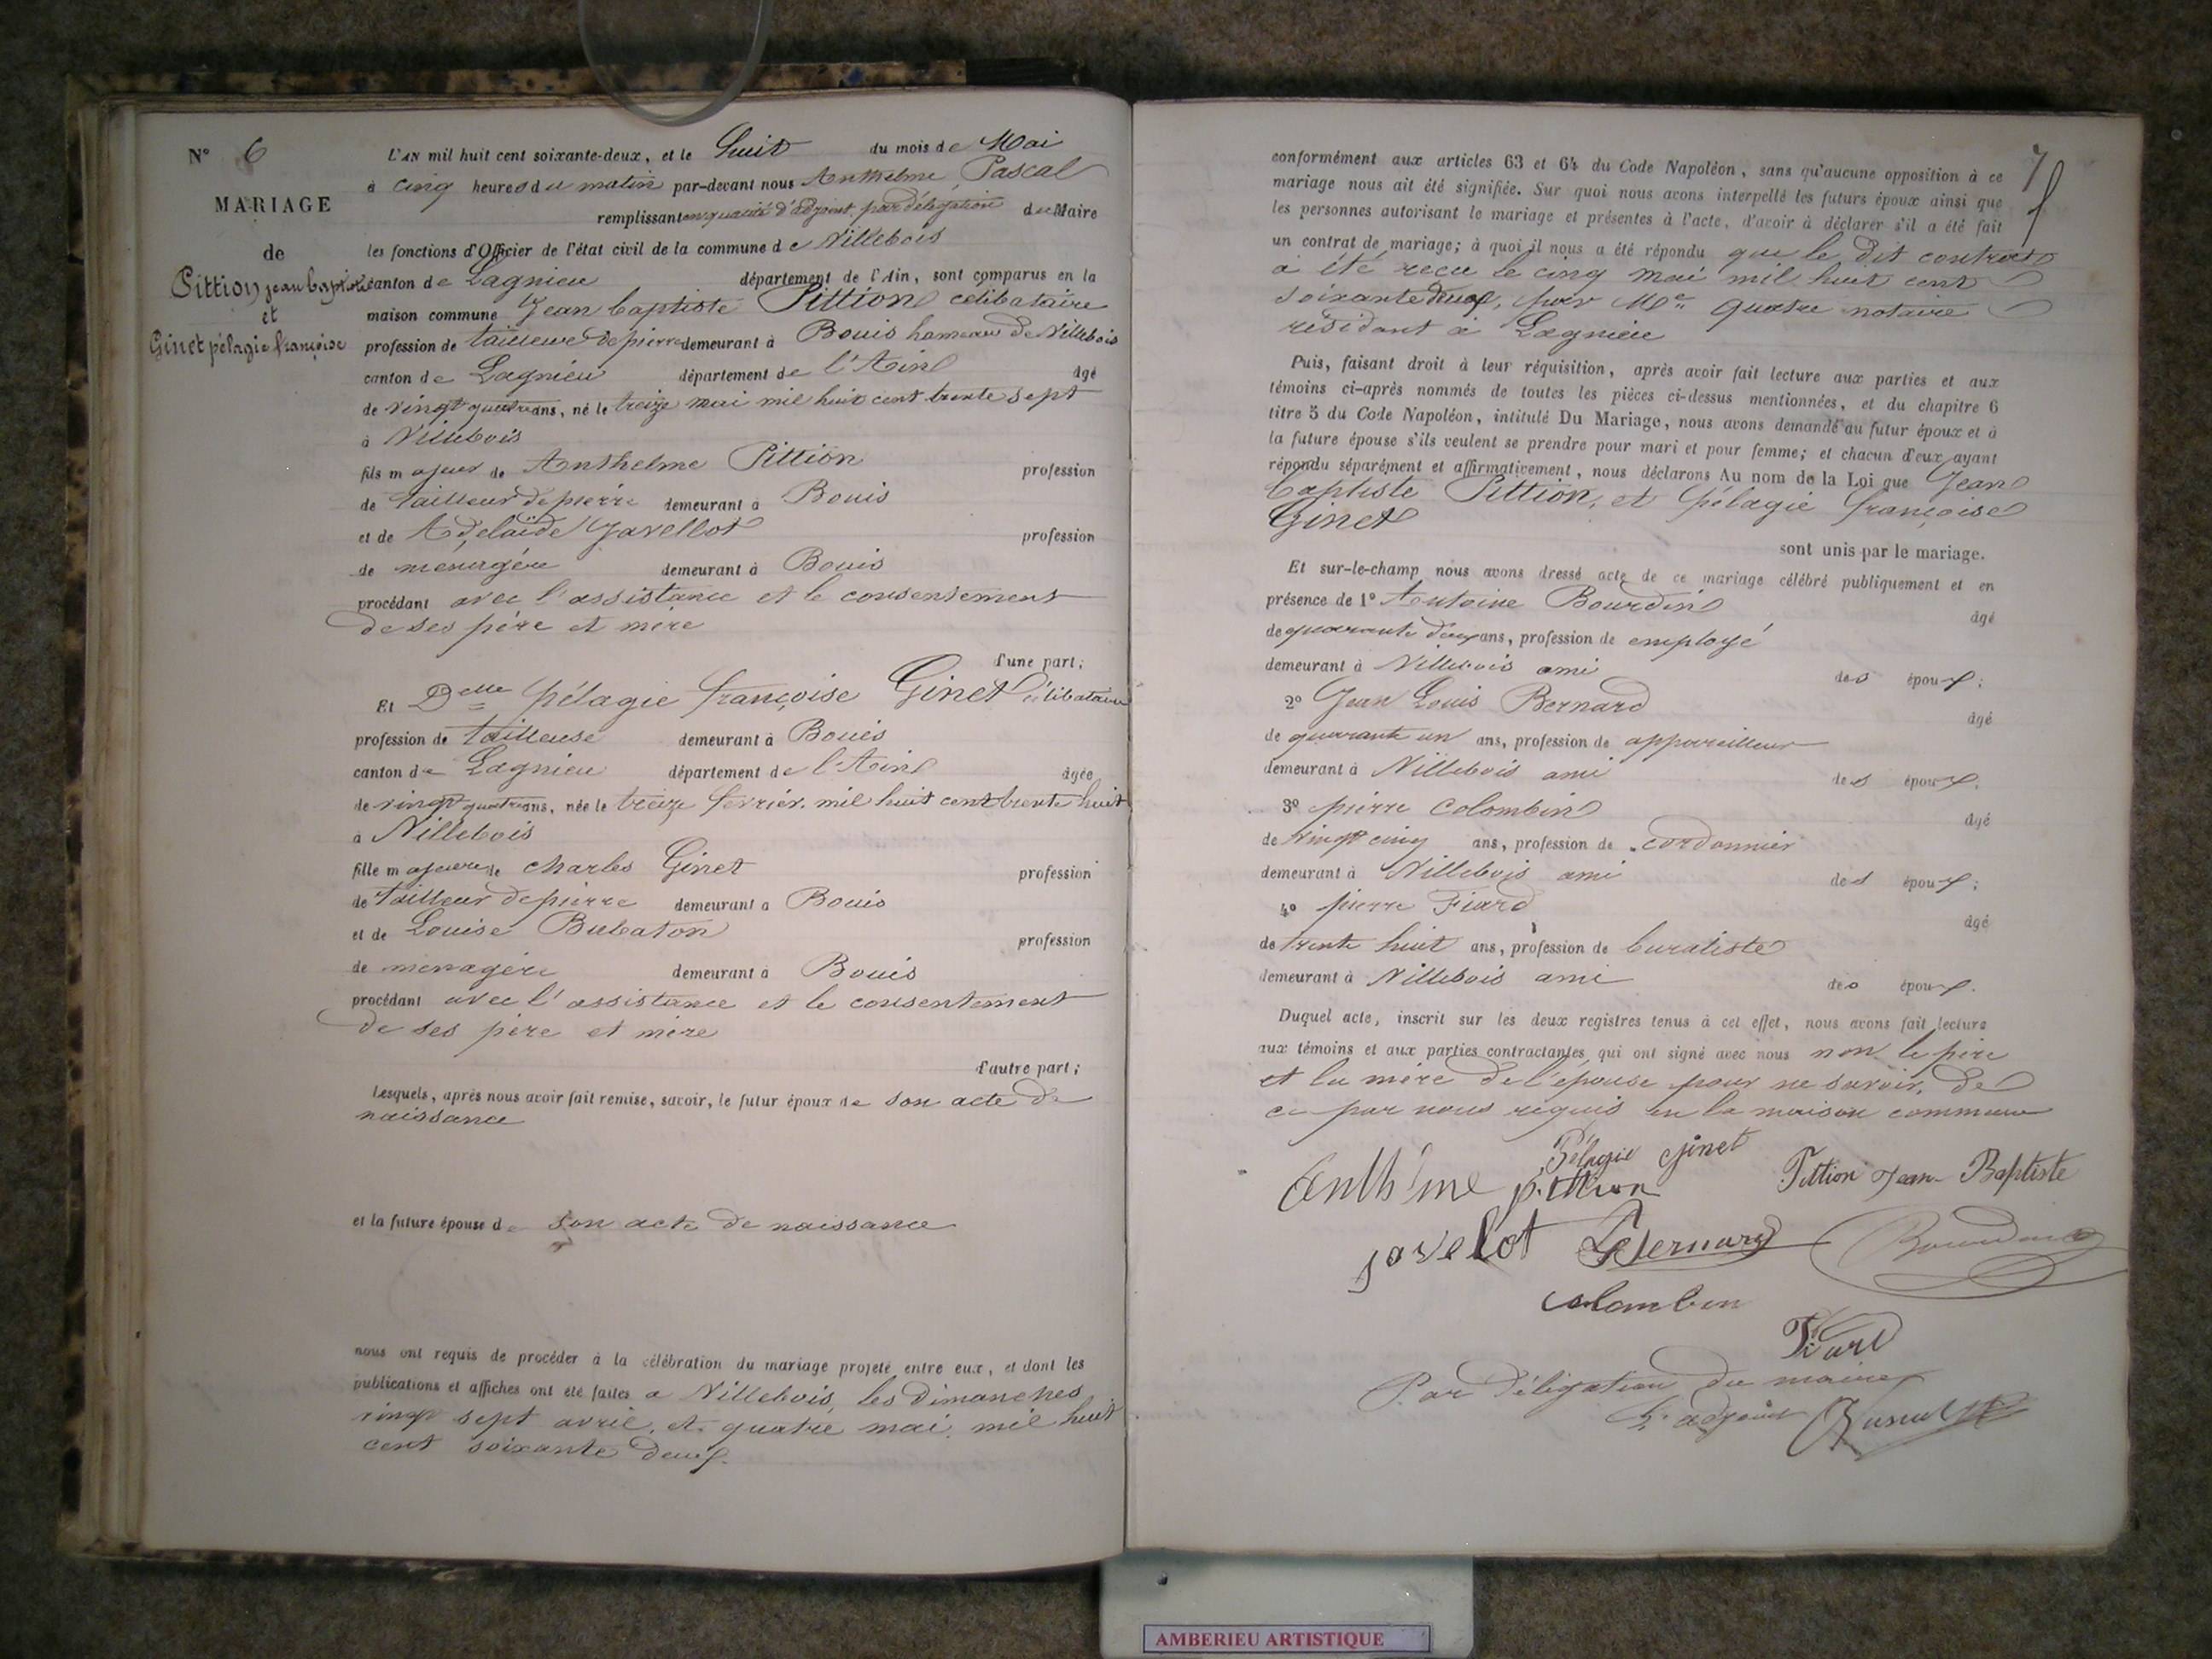 N° 6
MARIAGE
de
Pittion jean baptiste
et
Ginet pélagie françoise
L'AN mil huit cent soixante-deux, et le huit du mois de Mai
à cinq heures du matin par-devant nous Anthelme Pascal
remplissant en qualité d'adjoint par délégation du Maire
les fonctions d'Officier de l'état civil de la commune de Villebois
canton de Lagnieu département de l'Ain, sont comparus en la
maison commune Jean baptiste Pittion célibataire
profession de tailleur de pierre demeurant à Bouis hameau de Villebois
canton de Lagnieu département de l'Ain âgé
de vingt quatre ans, né le treize mai mil huit cent trente sept
à Villebois
fils majeur de Anthelme Pittion profession
de tailleur de pierre demeurant à Bouis
et de Adelaïde Javellot profession
de ménagère demeurant à Bouis
procédant avec l'assistance et le consentement
de ses père et mère
d'une part;
Et Delle pélagie françoise Ginet célibataire
profession de tailleuse demeurant à Bouis
canton de Lagnieu département de l'Ain âgée
de vingt quatre ans, née le treize février mil huit cent trente huit
à Villebois
fille majeure de charles Ginet profession
de tailleur de pierre demeurant à Bouis
et de Louise Bubaton profession
de ménagère demeurant à Bouis
procédant avec l'assistance et le consentement
de ses père et mère
d'autre part;
Lesquels, après nous avoir fait remise, savoir, le futur époux de son acte de
naissance
et la future épouse de son acte de naissance
nous ont requis de procéder à la célébration du mariage projeté entre eux, et dont les
publications et affiches ont été faites à Villebois, les dimanches
vingt sept avril, et quatre mai, mil huit
cent soixante deux.
7
conformément aux articles 63 et 64 du Code Napoléon, sans qu'aucune opposition à ce
mariage nous ait été signifiée. Sur quoi nous avons interpellé les futurs époux ainsi que
les personnes autorisant le mariage et présentes à l'acte, d'avoir à déclarer s'il a été fait
un contrat de mariage; à quoi il nous a été répondu que le dit contrat
a été reçu le cinq mai mil huit cent
soixante deux, par Me quatre notaire
résidant à Lagnieu
Puis, faisant droit à leur réquisition, après avoir fait lecture aux parties et aux
témoins ci-après nommés de toutes les pièces ci-dessus mentionnées, et du chapitre 6
titre 5 du Code Napoléon, intitulé Du Mariage, nous avons demandé au futur époux et à
la future épouse s'ils veulent se prendre pour mari et pour femme; et chacun d'eux ayant
répondu séparément et affirmativement, nous déclarons Au nom de la Loi que Jean
baptiste Pittion, et pélagie françoise
Ginet
sont unis par le mariage.
Et sur-le-champ nous avons dressé acte de ce mariage célébré publiquement et en
présence de 1° Antoine Bourdin âgé
de quarante deux ans, profession de employé
demeurant à Villebois ami des époux;
2° Jean Louis Bernard âgé
de quarante un ans, profession de appareilleur
demeurant à Villebois ami des époux;
3° pierre colombin âgé
de vingt cinq ans, profession de cordonnier
demeurant à Villebois ami des époux;
4° pierre Fiard âgé
de trente huit ans, profession de buraliste
demeurant à Villebois ami des époux.
Duquel acte, inscrit sur les deux registres tenus à cet effet, nous avons fait lecture
aux témoins et aux parties contractantes qui ont signé avec nous non le père
et la mère de l'épouse pour ne savoir, de
ce par nous requis en la maison commune
Pélagie ginet
Anthême pittion Pittion Jean-Baptiste
javelot L Bernard Bourdin
colombin
Fiard
Par délégation du maire
l'adjoint Pascal
AMBERIEU ARTISTIQUE